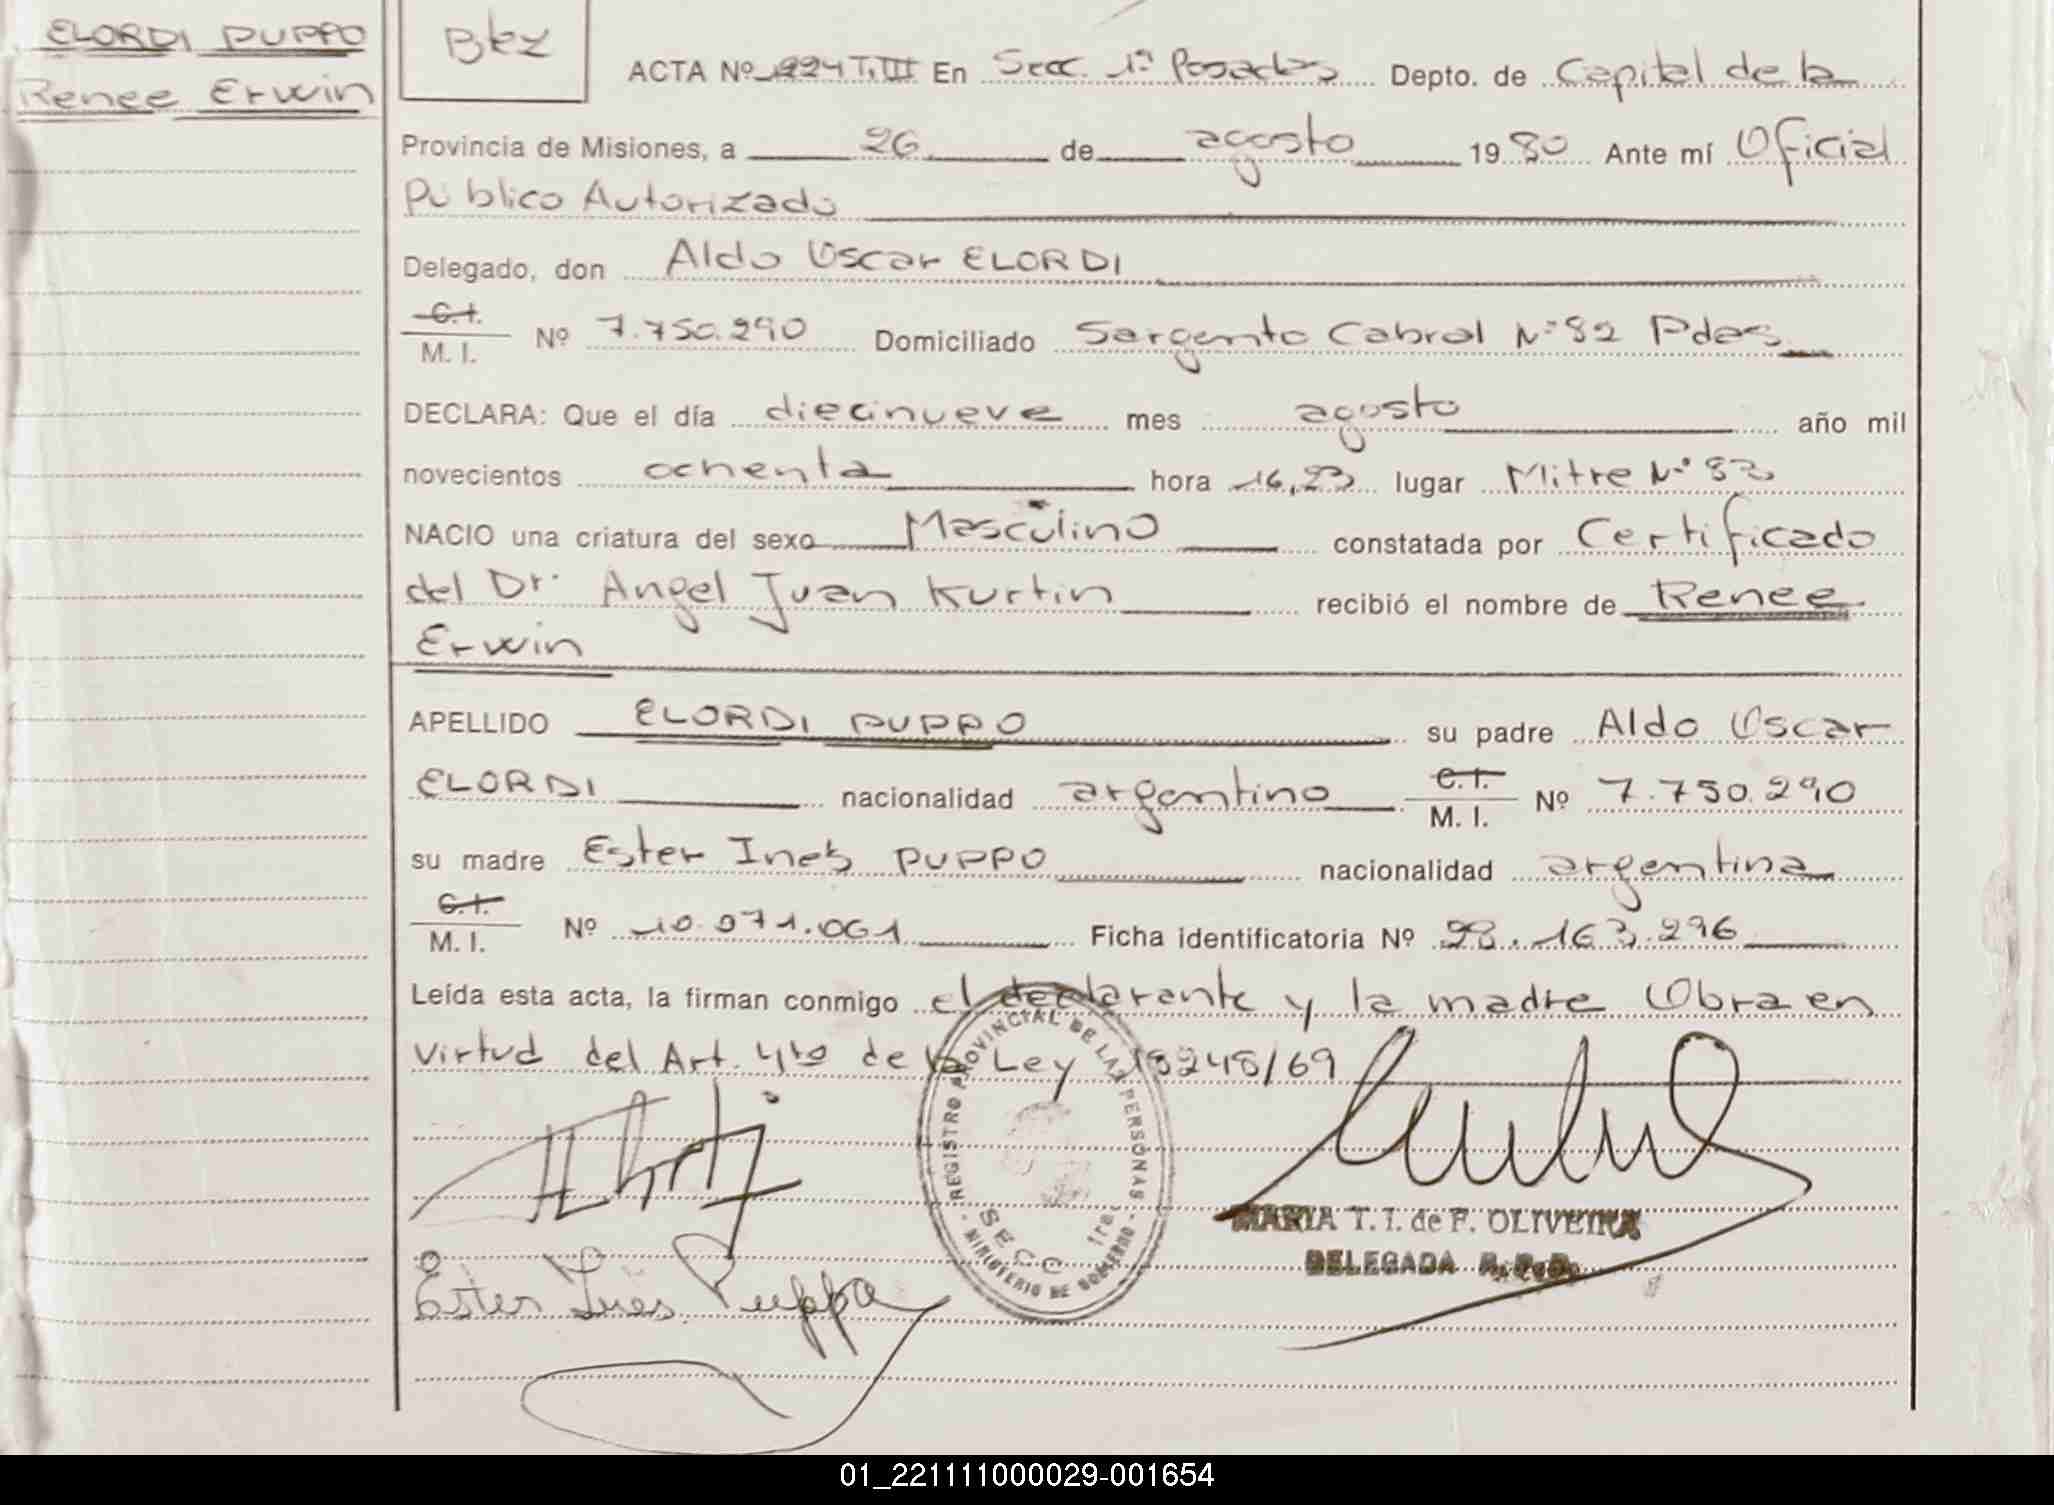 ELORDI PUPPO
Renee Erwin
Bkz
ACTA Nº 1224 T. III En Secc. 1ª Posadas Depto. de Capital de la
Provincia de Misiones, a 26 de agosto 1980 Ante mí Oficial
Público Autorizado
Delegado, don Aldo Oscar ELORDI
C.I.
M. I. Nº 7.750.290 Domiciliado Sargento Cabral Nº 82 Pdas
DECLARA: Que el día diecinueve mes agosto año mil
novecientos ochenta hora 16,23 lugar Mitre Nº 83
NACIO una criatura del sexo Masculino constatada por Certificado
del Dr. Angel Juan Kurtin recibió el nombre de Renee
Erwin
APELLIDO ELORDI PUPPO su padre Aldo Oscar
ELORDI nacionalidad argentino C.I. M. I. Nº 7.750.290
su madre Ester Inés PUPPO nacionalidad argentina
C.I.
M. I. Nº 10.071.061 Ficha identificatoria Nº 28.163.296
Leída esta acta, la firman conmigo el declarante y la madre Obra en
Virtud del Art. 4to de la Ley 18248/69
REGISTRO PROVINCIAL DE LAS PERSONAS
SECC 1ra.
MINISTERIO DE GOBIERNO
MARIA T. I. de F. OLIVEIRA
DELEGADA R.P.P.
Ester Inés Puppo
01_221111000029-001654